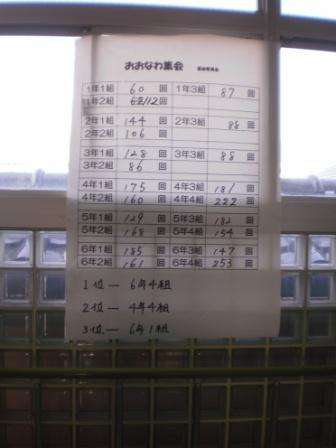 おおなわ集会
1年1組 60 回 1年3組 87 回
1年2組 112 回
2年1組 144 回 2年3組 88 回
2年2組 106 回
3年1組 128 回 3年3組 88 回
3年2組 86 回
4年1組 175 回 4年3組 181 回
4年2組 160 回 4年4組 222 回
5年1組 129 回 5年3組 182 回
5年2組 168 回 5年4組 154 回
6年1組 185 回 6年3組 147 回
6年2組 161 回 6年4組 253 回
1位 — 6年4組
2位 — 4年4組
3位 — 6年1組